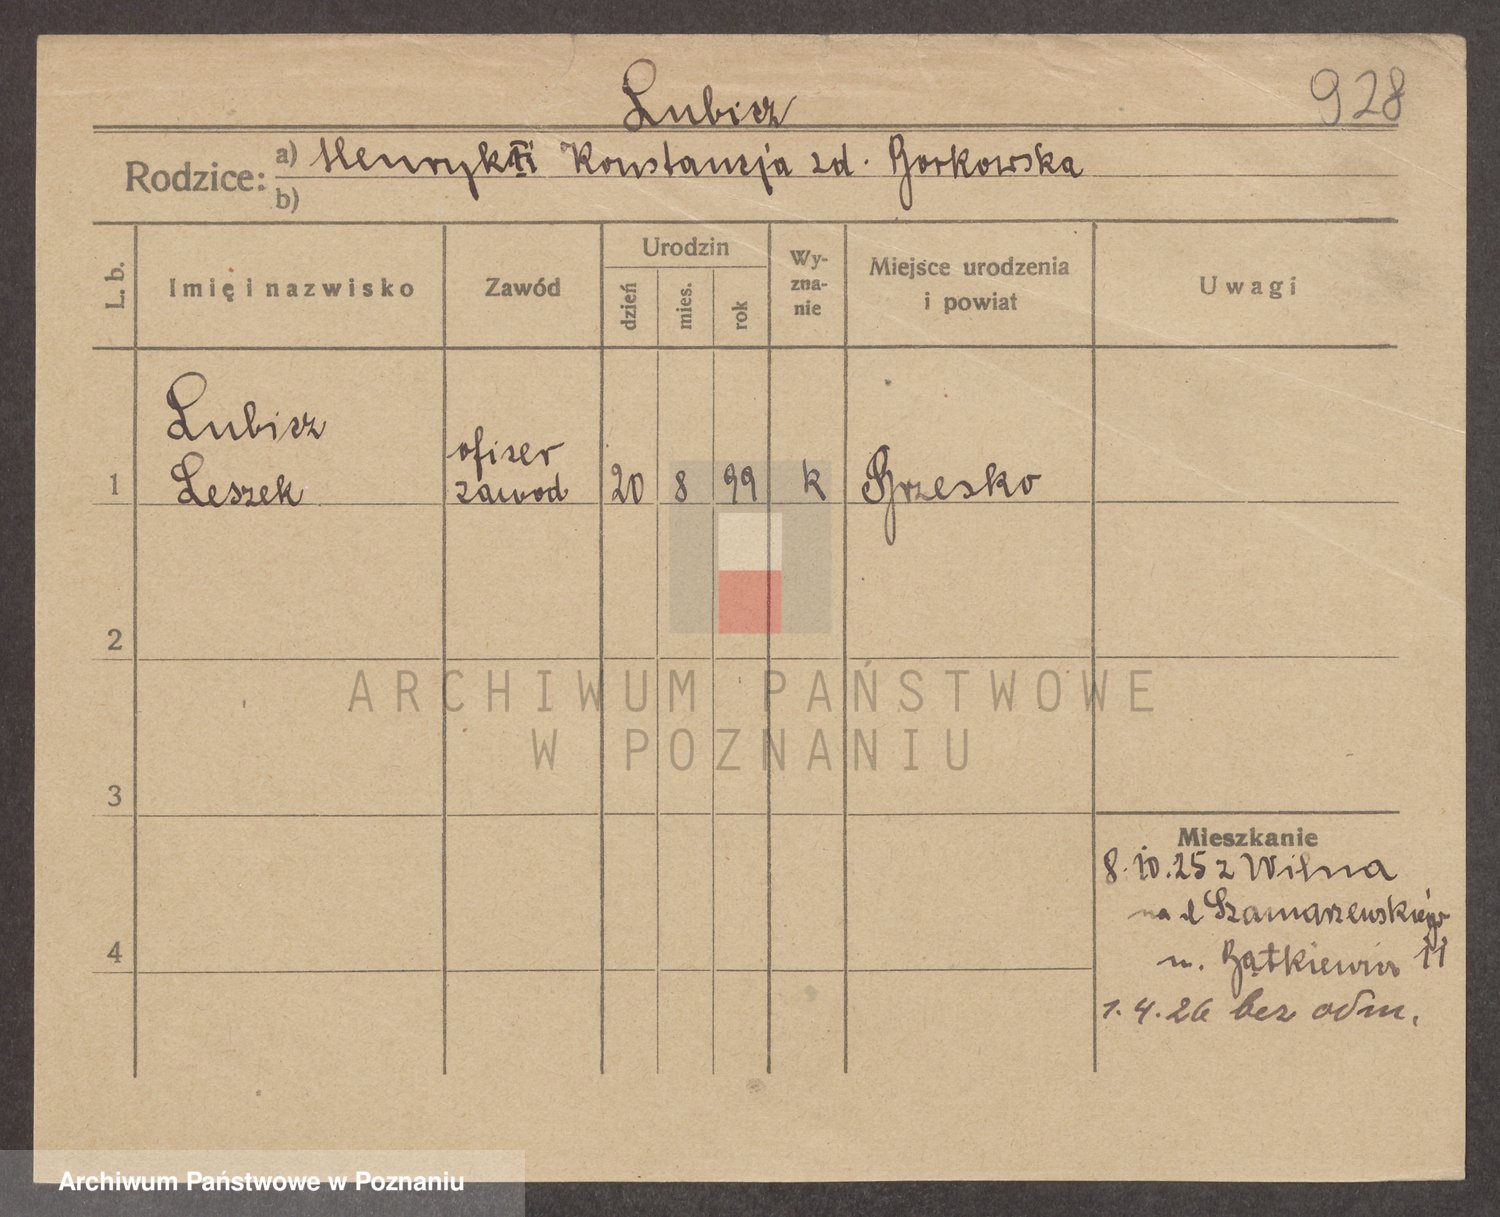 928
Lubicz
Rodzice: a) Henryk i Konstancja zd. Borkowska
b)
L. b.
Imię i nazwisko
Zawód
Urodzin
dzień
mies.
rok
Wy-
zna-
nie
Miejsce urodzenia
i powiat
Uwagi
Lubicz
1 Leszek
oficer
zawod
20 8 99 k Brzesko
2
3
4
Mieszkanie
8.10.25 z Wilna
na d Szamarzewskiego
u. 11
1.4.26 bez odm.
ARCHIWUM PAŃSTWOWE
W POZNANIU
Archiwum Państwowe w Poznaniu